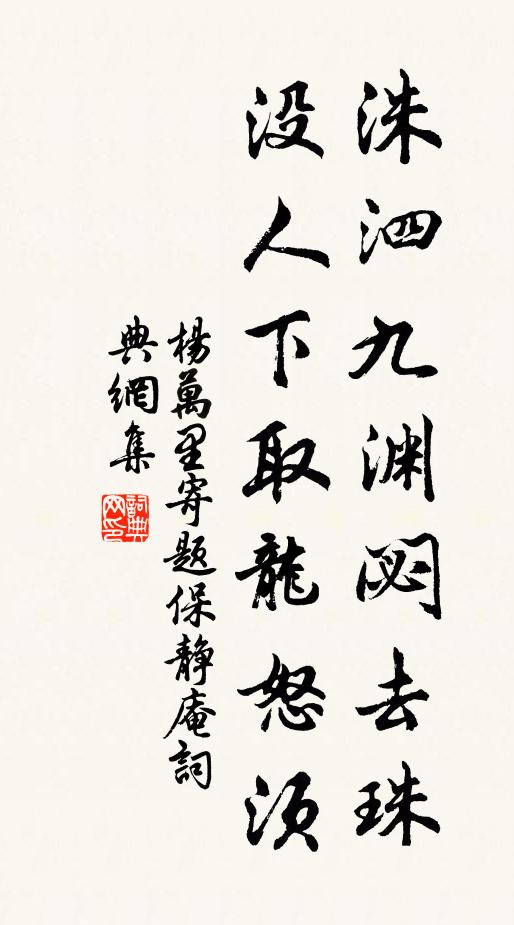 洙泗九渊閟去珠
没人下取龍怒须
楊萬里寄题保静庵詞
典網集
詞典
网印